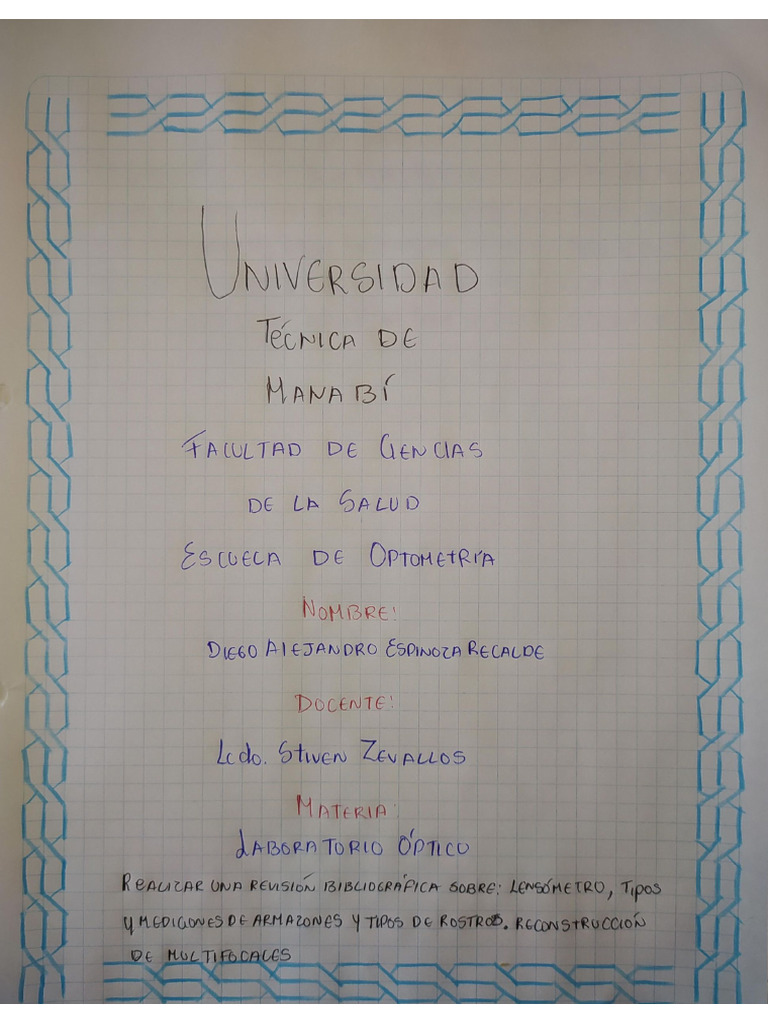 UNIVERSIDAD
TÉCNICA DE
MANABÍ
FACULTAD DE CIENCIAS
DE LA SALUD
ESCUELA DE OPTOMETRÍA
NOMBRE:
DIEGO ALEJANDRO ESPINOZA RECALDE
DOCENTE:
Lcdo. STIVEN ZEVALLOS
MATERIA:
LABORATORIO ÓPTICO
REALIZAR UNA REVISIÓN BIBLIOGRÁFICA SOBRE: LENSÓMETRO, TIPOS
Y MEDICIONES DE ARMAZONES Y TIPOS DE ROSTROS. RECONSTRUCCIÓN
DE MULTIFOCALES